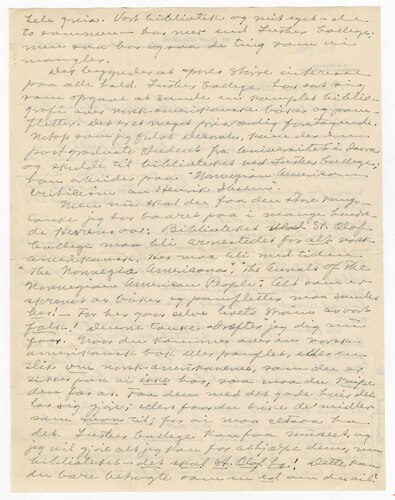 hele greia. Vort bibliotek og mit eget - de
to sammen - har mer end Luther College,
men saa har ogsaa de ting som vi
mangler.
Der begyndes at spores større interesse
paa alle hold. Luther College har sat sig
som opgave at samle en komplet biblio-
grafi over norsk-amerikanske bøker og pam-
fletter. Det er et meget prisværdig foretagende.
Netop som jeg forlot Decorah, kom der en
postgraduate student fra Universitetet i Iowa
og skulde til biblioteket ved Luther College;
han arbeider paa "Norwegian American
Criticism on Henrik Ibsen."
Men nu skal du faa den store
tanke jeg har baaret paa i mange
Biblioteket St. Olaf
College maa bli arnestedet for alt norsk
amerikansk. Her maa bli med tiden
"The Norwegian Americana", "The Annals of the
Norwegian American People". Alt som er
skrevet av bøker og pamfletter maa samles
her! - For her gaar selve livets strøm av vort
folk! Denne tanke drøfter jeg dig nu
for. Hvor du kommer over en norsk-
amerikansk bok eller pamflet, eller en
slik om norsk-amerikanerne, som du er
sikker paa vi ikke har, saa maa du
den for os. Faa dem med det gode hvis det
lar sig gjøre; ellers faar du bruke de midler
som maa til; for vi maa ha
det. Luther College kan faa museet, og
jeg vil gjøre alt jeg kan for at hjælpe dem, men
biblioteket - det skal St. Olaf ha! Dette kan
du bare betragte som en ed om du vil.